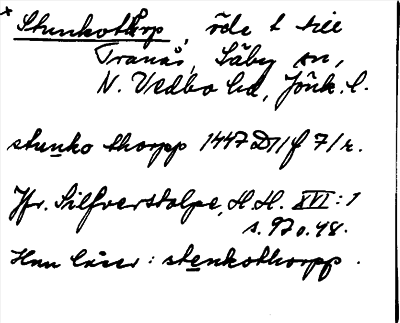 x Stunkothorp, öde t till
Tranås, Säby sn,
N. Vedbo hd, Jönk. l.
stunko thorpp 1447 D11 f 7/r.
Jfr. Silfverstolpe, H. H. XVI: 1
s. 97 o. 48.
Han läser: stenkothorpp.